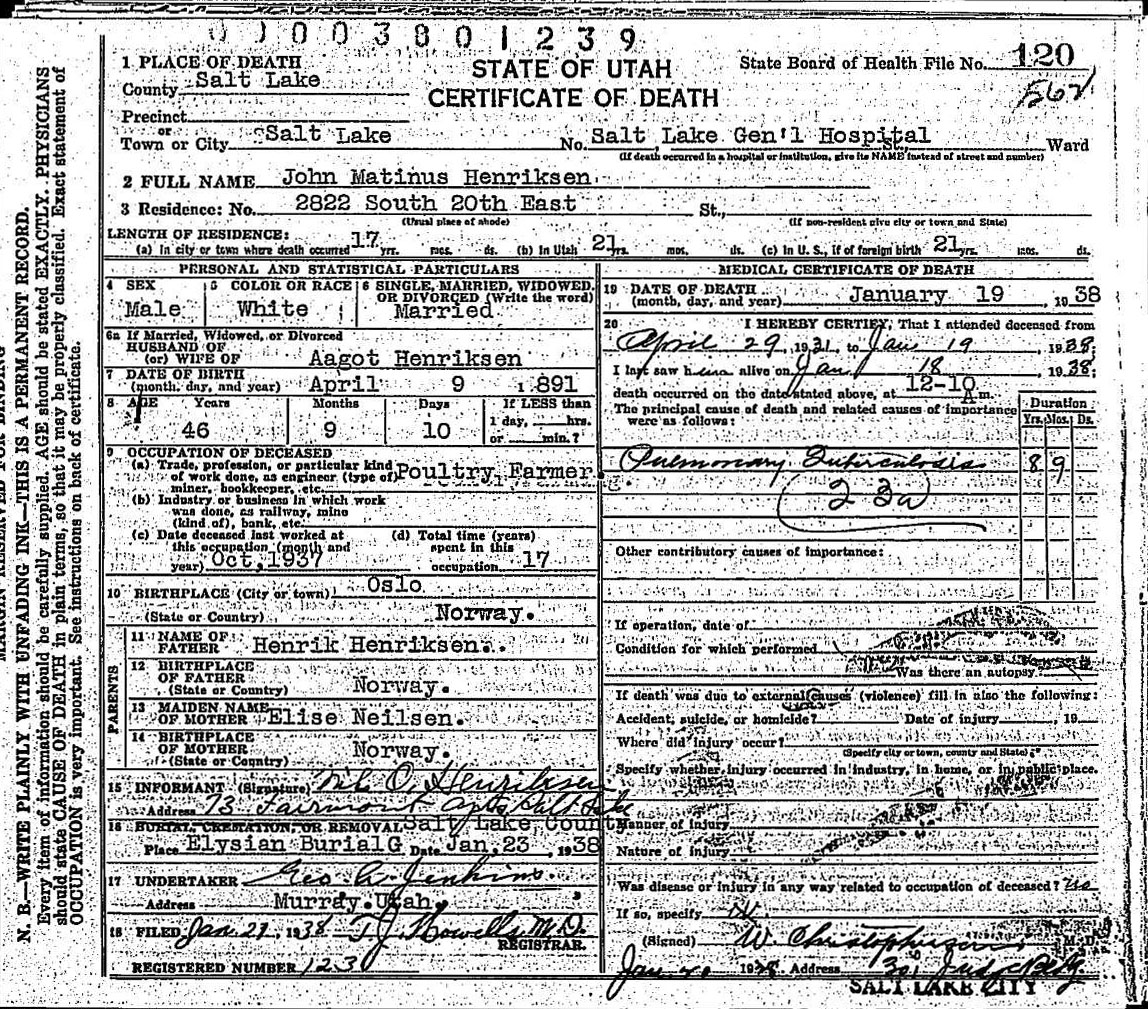 0 1 0 0 3 8 0 1 2 3 9
1 PLACE OF DEATH
STATE OF UTAH
State Board of Health File No. 120
County Salt Lake
CERTIFICATE OF DEATH
Precinct
or
Town or City Salt Lake No. Salt Lake Gen'l Hospital St., Ward
(If death occurred in a hospital or institution, give its NAME instead of street and number)
2 FULL NAME John Matinus Henriksen
3 Residence: No. 2822 South 20th East St.,
(Usual place of abode) (If non-resident give city or town and State)
LENGTH OF RESIDENCE:
(a) In city or town where death occurred 17 yrs. mos. ds. (b) In Utah 21 yrs. mos. ds. (c) In U. S., if of foreign birth 21 yrs. mos. ds.
PERSONAL AND STATISTICAL PARTICULARS
4 SEX
Male
5 COLOR OR RACE
White
6 SINGLE, MARRIED, WIDOWED,
OR DIVORCED (Write the word)
Married
6a If Married, Widowed, or Divorced
HUSBAND OF
(or) WIFE OF Aagot Henriksen
7 DATE OF BIRTH
(month, day, and year) April 9 1891
8 AGE Years Months Days If LESS than
46 9 10 1 day, hrs.
or min.?
9 OCCUPATION OF DECEASED
(a) Trade, profession, or particular kind
of work done, as engineer (type of) Poultry Farmer.
miner, bookkeeper, etc.
(b) Industry or business in which work
was done, as railway, mine
(kind of), bank, etc.
(c) Date deceased last worked at
this occupation (month and
year) Oct, 1937
(d) Total time (years)
spent in this
occupation 17
10 BIRTHPLACE (City or town) Oslo
(State or Country) Norway.
PARENTS
11 NAME OF
FATHER Henrik Henriksen.
12 BIRTHPLACE
OF FATHER
(State or Country) Norway.
13 MAIDEN NAME
OF MOTHER Elise Neilsen.
14 BIRTHPLACE
OF MOTHER
(State or Country) Norway.
15 INFORMANT (Signature) O. Henriksen
Address 73 Fairmont Apts Salt Lake
16 BURIAL, CREMATION, OR REMOVAL Salt Lake Count
Place Elysian Burial G Date Jan. 23, 1938
17 UNDERTAKER Geo. A. Jenkins.
Address Murray, Utah.
18 FILED Jan. 21, 1938 T. J. Howells M.D.
REGISTRAR.
REGISTERED NUMBER 123
MEDICAL CERTIFICATE OF DEATH
19 DATE OF DEATH
(month, day, and year) January 19, 1938
20 I HEREBY CERTIFY, That I attended deceased from
April 29, 1931, to Jan 19, 1938;
I last saw him alive on Jan 18, 1938;
death occurred on the date stated above, at 12-10 A.m.
The principal cause of death and related causes of importance
were as follows:
Duration
Yrs. Mos. Ds.
Pulmonary Tuberculosis 8 9
23a
Other contributory causes of importance:
If operation, date of
Condition for which performed
Was there an autopsy
If death was due to external causes (violence) fill in also the following:
Accident, suicide, or homicide? Date of injury, 19
Where did injury occur?
(Specify city or town, county and State)
Specify whether injury occurred in industry, in home, or in public place.
Manner of injury
Nature of injury
Was disease or injury in any way related to occupation of deceased? no
If so, specify
(Signed) W. Christopherson M.D.
Jan 20 1938 Address 301 Judge Bldg.
SALT LAKE CITY
N. B.—WRITE PLAINLY WITH UNFADING INK—THIS IS A PERMANENT RECORD.
Every item of information should be carefully supplied. AGE should be stated EXACTLY. PHYSICIANS
should state CAUSE OF DEATH in plain terms, so that it may be properly classified. Exact statement of
OCCUPATION is very important. See instructions on back of certificate.